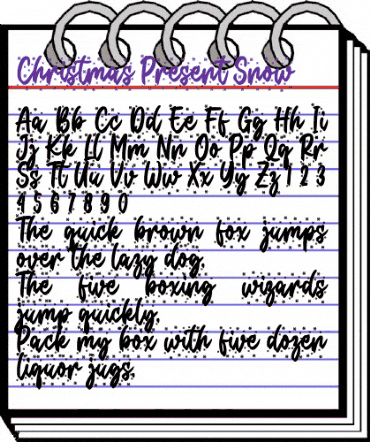 Christmas Present Snow
Aa Bb Cc Dd Ee Ff Gg Hh Ii
Jj Kk Ll Mm Nn Oo Pp Qq Rr
Ss Tt Uu Vv Ww Xx Yy Zz 1 2 3
4 5 6 7 8 9 0
The quick brown fox jumps
over the lazy dog.
The five boxing wizards
jump quickly.
Pack my box with five dozen
liquor jugs.